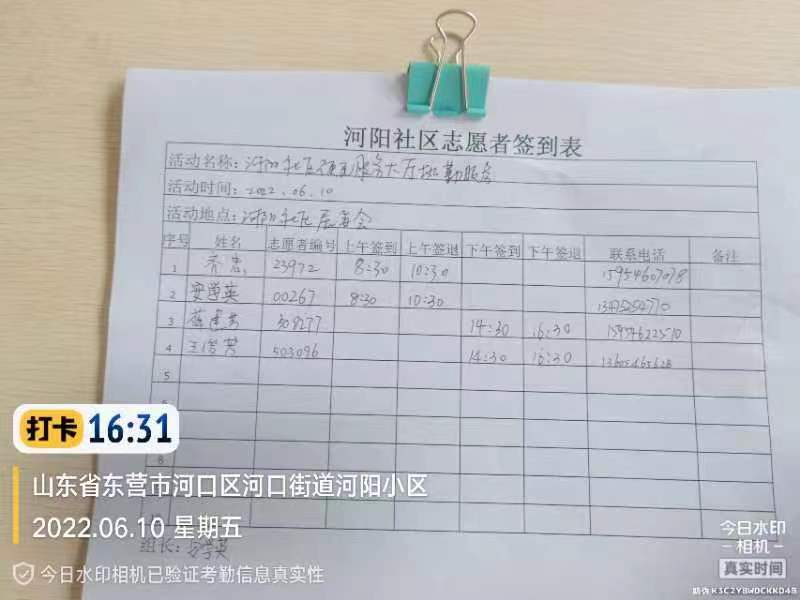 河阳社区志愿者签到表
活动名称：河阳社区便民服务大厅执勤服务
活动时间：2022.06.10
活动地点：河阳社区居委会
序号 姓名 志愿者编号 上午签到 上午签退 下午签到 下午签退 联系电话 备注
1 齐忠 23972 8:30 10:30 15954607078
2 安学英 00267 8:30 10:30
3 308277 14:30 16:30
4 503096 14:30 16:30
5
8
组长：安学英
打卡 16:31
山东省东营市河口区河口街道河阳小区
2022.06.10 星期五
今日水印相机已验证考勤信息真实性
今日水印
-相机-
真实时间
防伪 K3C2YBWDCKKD4B